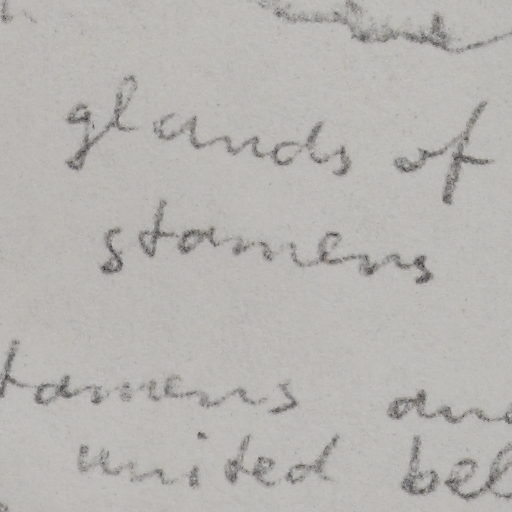 glands of
stamens
tamens and
united bel